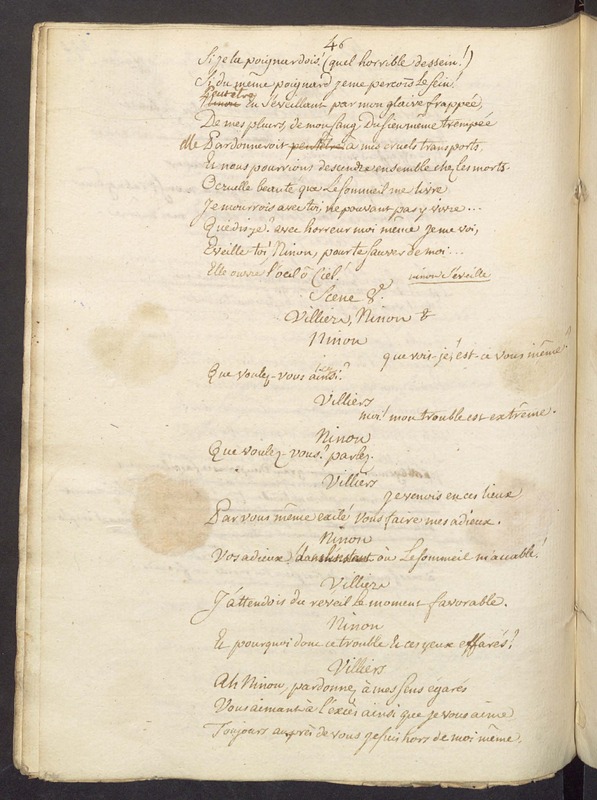 46
Si je la poignardois! (quel horrible dessein!)
Si du même poignard je me percois le sein!
Peutetre
Ninon en s'eveillant par mon glaive frappée,
De mes pleurs, de mon sang, du sien même trempée
elle Pardonneroit peutetre à mes cruels transports.
Et nous pourrions descendre ensemble chez les morts.
O cruelle beauté que le sommeil me livre
Je mourrois avec toi, ne pouvant pas y vivre...
Que dis-je? avec horreur moi même je me voi,
Eveille toi Ninon, pour te sauver de moi...
Elle ouvre l'oeil ô Ciel!
ninon s'éveille
Scene 8.e
Villiers, Ninon &
Ninon
que vois-je! est-ce vous même?
Que voulez-vous ainsi?
Villiers
moi! mon trouble est extrême.
Ninon
Que voulez-vous? parlez.
Villiers
je venois en ces lieux
Par vous même exilé vous faire mes adieux.
Ninon
Vos adieux, dans l'instant où le sommeil m'accable!
Villiers
J'attendois du reveil le moment favorable.
Ninon
Et pourquoi donc ce trouble & ces yeux effarés?
Villiers
Ah Ninon, pardonnez à mes sens égarés
Vous aimant à l'excès ainsi que je vous aime
Toujours auprès de vous je suis hors de moi même.